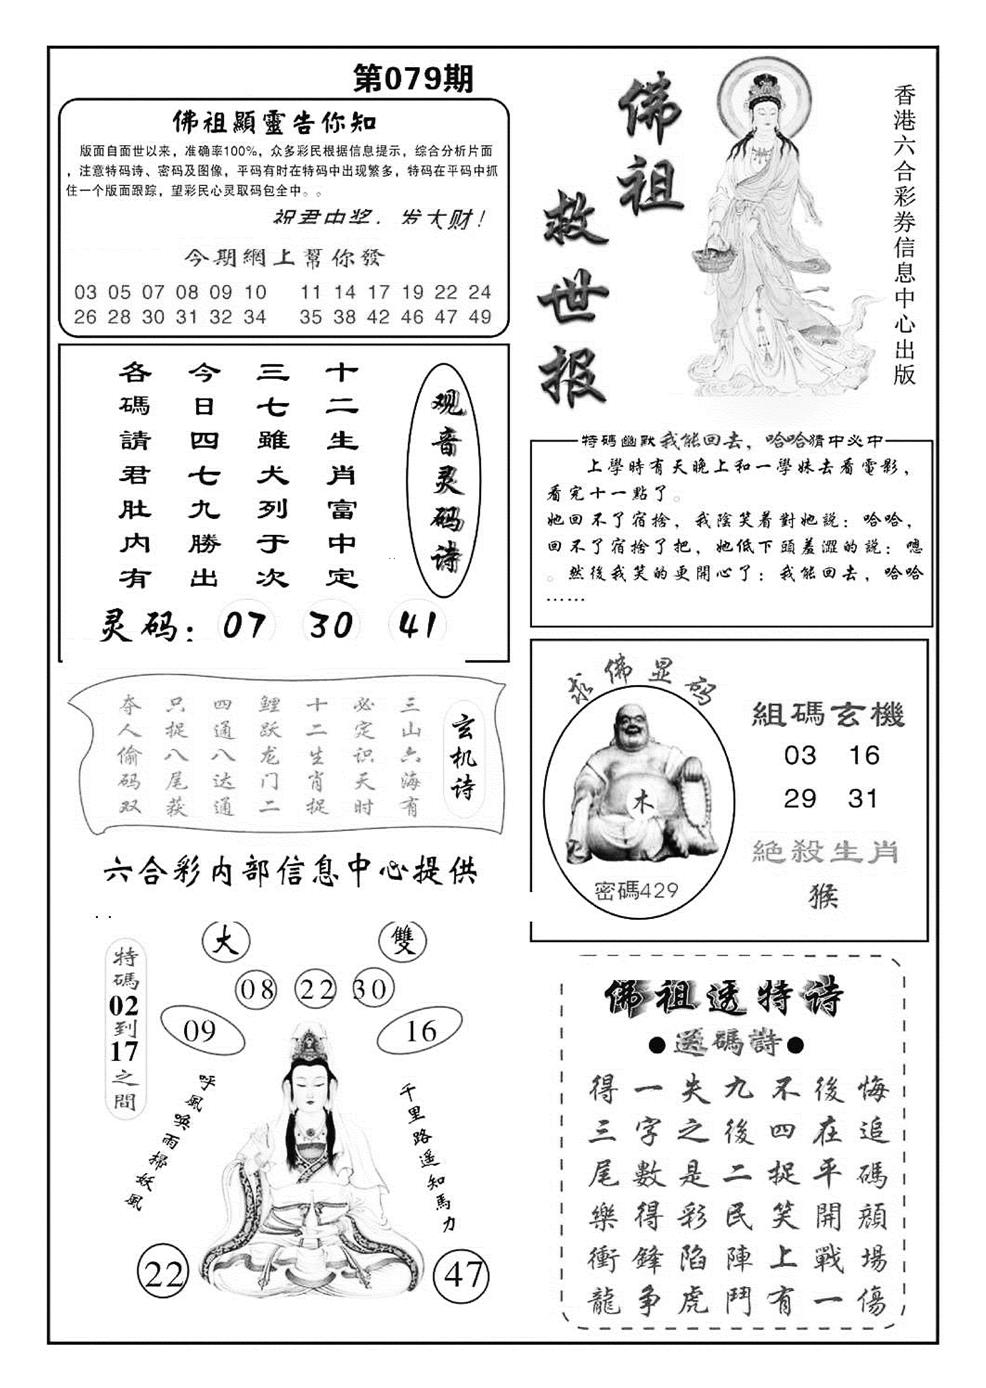 第079期
佛祖顯靈告你知
版面自面世以来，准确率100%，众多彩民根据信息提示，综合分析片面
，注意特码诗、密码及图像，平码有时在特码中出现繁多，特码在平码中抓
住一个版面跟踪，望彩民心灵取码包全中。。
祝君中奖，发大财！
今期網上幫你發
03 05 07 08 09 10 11 14 17 19 22 24
26 28 30 31 32 34 35 38 42 46 47 49
佛祖
救世报
香港六合彩券信息中心出版
观音灵码诗
十二生肖富中定
三七雖犬列于次
今日四七九勝出
各碼請君肚内有
灵码：07 30 41
特碼幽默我能回去，哈哈猜中必中
上學時有天晚上和一學妹去看電影，
看完十一點了。
她回不了宿捨，我陰笑着對她説：哈哈，
回不了宿捨了把，她低下頭羞澀的説：嗯
。然後我笑的更開心了：我能回去，哈哈
……
玄机诗
三山六海有
必定识天时
十二生肖捉
鲤跃龙门二
四通八达通
只捉八尾获
夺人偷码双
六合彩内部信息中心提供
求佛显码
木
密碼429
組碼玄機
03 16
29 31
絕殺生肖
猴
大 雙
08 22 30
09 16
特碼02到17之間
呼風唤雨掃妖風
千里路遥知馬力
22 47
佛祖透特诗
●透碼詩●
得一失九不後悔
三字之後四在追
尾數是二捉平碼
樂得彩民笑開顔
衝鋒陷陣上戰場
龍争虎鬥有一傷